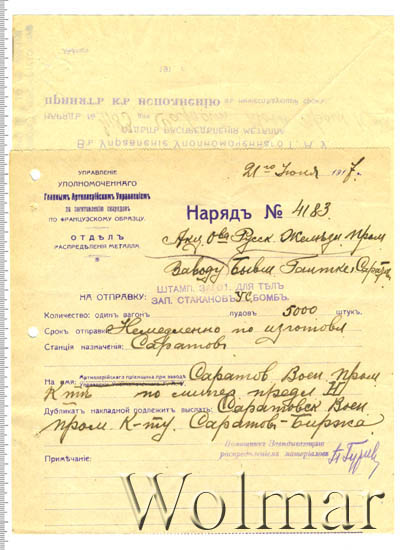 191
ПРИНЯТЪ КЪ ИСПОЛНЕНІЮ
НАРЯДЪ №
ОТДѢЛЪ РАСПРЕДѢЛЕНІЯ МЕТАЛЛА
Въ Управленіе Уполномоченнаго Г. А. У.
УПРАВЛЕНІЕ
УПОЛНОМОЧЕННАГО
Главнымъ Артиллерійскимъ Управленіемъ
по заготовленію снарядовъ
ПО ФРАНЦУЗСКОМУ ОБРАЗЦУ.
ОТДѢЛЪ
РАСПРЕДѢЛЕНІЯ МЕТАЛЛА.
21го Іюня 1917г.
Нарядъ № 4183
Акц. Ова Русск. Желѣзн. Пром
Заводу Бывш. Гантке Сарат
НА ОТПРАВКУ:
ШТАМП. ЗАГОТ. ДЛЯ ТѢЛ
ЗАП. СТАКАНОВЪ УС БОМБЪ.
Количество: одинъ вагонъ пудовъ 5000 штукъ.
Срокъ отправки: Немедленно по изготовл
Станція назначенія: Саратовъ
На имя: Саратов Воен пром
К-тъ по литер предл Н
Дубликатъ накладной подлежитъ выслать: Саратовск Воен
пром. К-ту. Саратовъ-Биржа.
Примѣчаніе:
Помощникъ Завѣдывающаго
распредѣленіемъ матеріаловъ
Wolmar